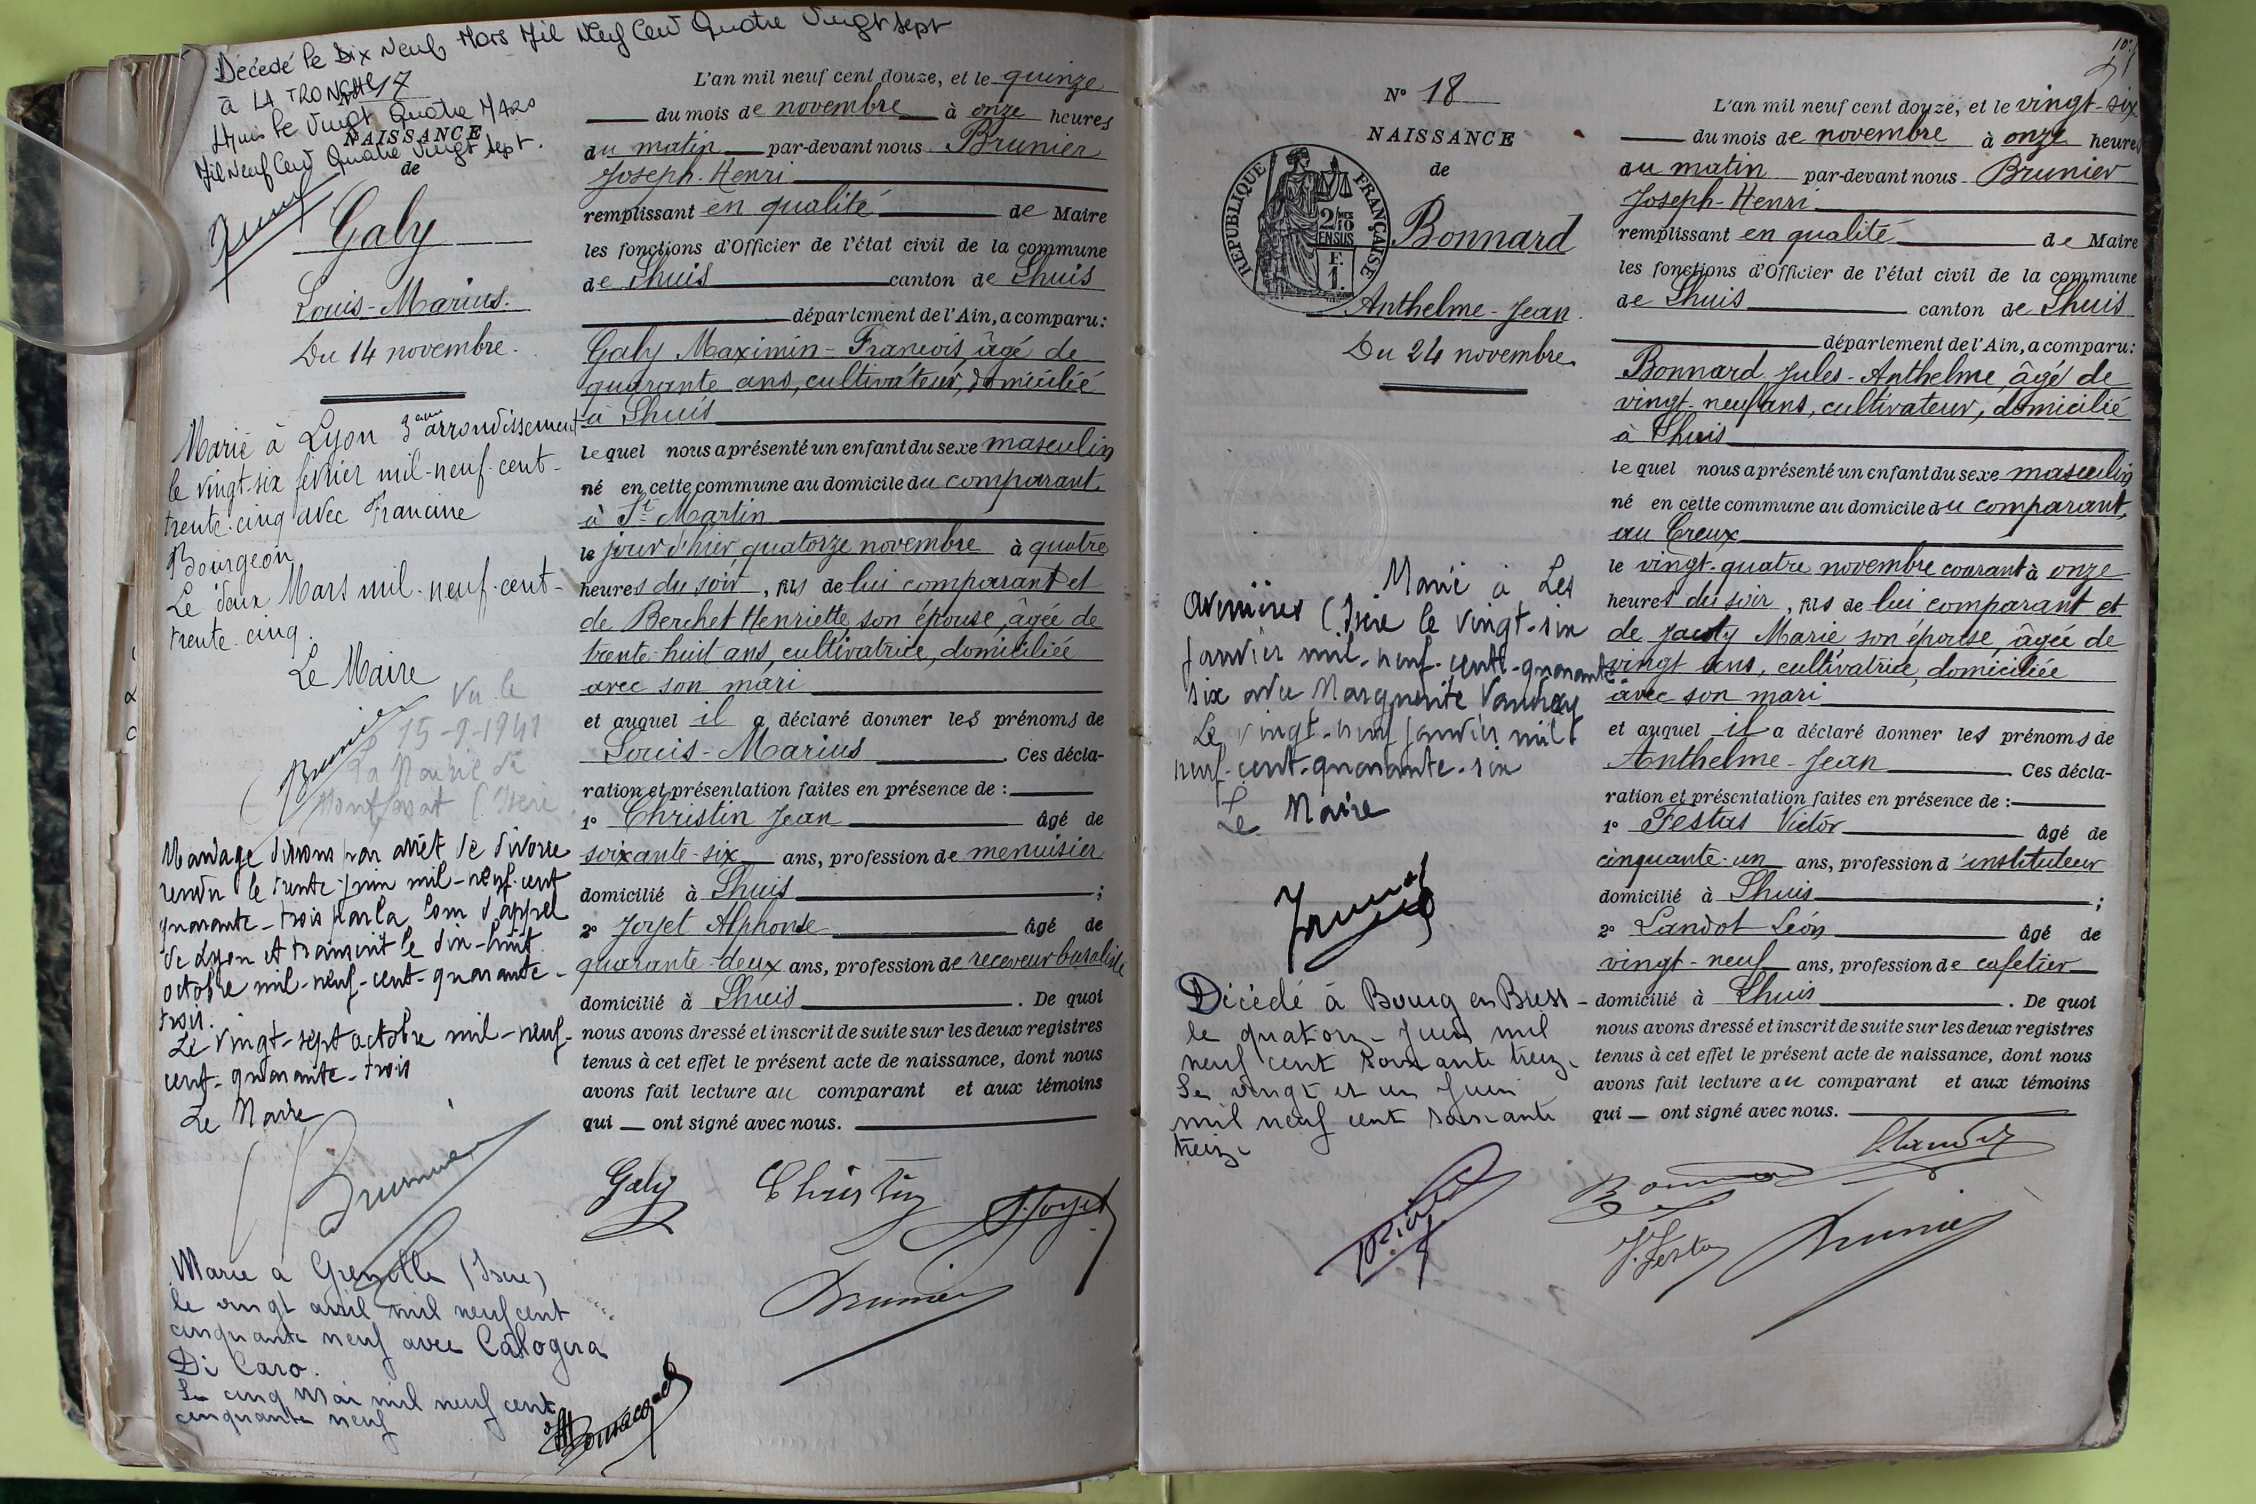 Décédé le Dix Neuf Mars Mil Neuf Cent Quatre Vingt sept
à LA TRONCHE
Lhuis le Vingt Quatre MARS
Mil Neuf Cent Quatre Vingt sept.
N° 17
NAISSANCE
de
Galy
Louis-Marius.
Du 14 novembre.
Marié à Lyon 3ème arrondissement
le vingt-six février mil-neuf-cent-
trente-cinq avec Francine
Bourgeon
Le deux Mars mil-neuf-cent-
trente-cinq.
Le Maire
Brunier
Vu le
15-9-1941
La Mairie de
(Isère
Mariage dissous par arrêt de divorce
rendu le trente juin mil-neuf-cent
quarante-trois par la Cour d'appel
de Lyon et transcrit le dix-huit
octobre mil-neuf-cent-quarante-
trois.
Le vingt-sept octobre mil-neuf-
cent-quarante-trois
Le Maire
Brunier
Marié a Grenoble (Isère)
le vingt avril mil neuf cent
cinquante neuf avec Calogera
Di Caro.
Le cinq Mai mil neuf cent
cinquante neuf
L'an mil neuf cent douze, et le quinze
du mois de novembre à onze heures
du matin par-devant nous Brunier
Joseph-Henri
remplissant en qualité de Maire
les fonctions d'Officier de l'état civil de la commune
de Lhuis canton de Lhuis
département de l'Ain, a comparu:
Galy Maximin-François, âgé de
quarante ans, cultivateur, domicilié
à Lhuis
lequel nous a présenté un enfant du sexe masculin
né en cette commune au domicile du comparant
à St Martin
le jour d'hier quatorze novembre à quatre
heures du soir, fils de lui comparant et
de Berchet Henriette son épouse, âgée de
trente-huit ans, cultivatrice, domiciliée
avec son mari
et auquel il a déclaré donner les prénoms de
Louis-Marius. Ces décla-
ration et présentation faites en présence de :
1° Christin Jean âgé de
soixante-six ans, profession de menuisier
domicilié à Lhuis ;
2° Joyet Alphonse âgé de
quarante-deux ans, profession de receveur buraliste
domicilié à Lhuis. De quoi
nous avons dressé et inscrit de suite sur les deux registres
tenus à cet effet le présent acte de naissance, dont nous
avons fait lecture au comparant et aux témoins
qui — ont signé avec nous.
Galy Christin A. Joyet
Brunier
N° 18
NAISSANCE
de
REPUBLIQUE FRANÇAISE
2/10
EN SUS
F.
1.
Bonnard
Anthelme-Jean.
Du 24 novembre
Marié à Les
Avenières (Isère le vingt-six
Janvier mil-neuf-cent-quarante
six avec Marguerite
Le vingt-neuf Janvier mil
neuf-cent-quarante-six
Le Maire
Décédé à Bourg en Bress-
le quatorz- Juin mil
neuf cent soixante treiz-
Le vingt et un Juin
mil neuf cent soixante
treiz-
L'an mil neuf cent douze, et le vingt-six
du mois de novembre à onze heures
du matin par-devant nous Brunier
Joseph-Henri
remplissant en qualité de Maire
les fonctions d'Officier de l'état civil de la commune
de Lhuis canton de Lhuis
département de l'Ain, a comparu:
Bonnard Jules-Anthelme, âgé de
vingt-neuf ans, cultivateur, domicilié
à Lhuis
lequel nous a présenté un enfant du sexe masculin
né en cette commune au domicile du comparant,
au Creux
le vingt-quatre novembre courant à onze
heures du soir, fils de lui comparant et
de Marie son épouse, âgée de
vingt ans, cultivatrice, domiciliée
avec son mari
et auquel il a déclaré donner les prénoms de
Anthelme-Jean. Ces décla-
ration et présentation faites en présence de :
1° Festas Victor âgé de
cinquante-un ans, profession d'instituteur
domicilié à Lhuis ;
2° Landot Léon âgé de
vingt-neuf ans, profession de cafetier
domicilié à Lhuis. De quoi
nous avons dressé et inscrit de suite sur les deux registres
tenus à cet effet le présent acte de naissance, dont nous
avons fait lecture au comparant et aux témoins
qui — ont signé avec nous.
L. Landot
Bonnard
V. Festas Brunier